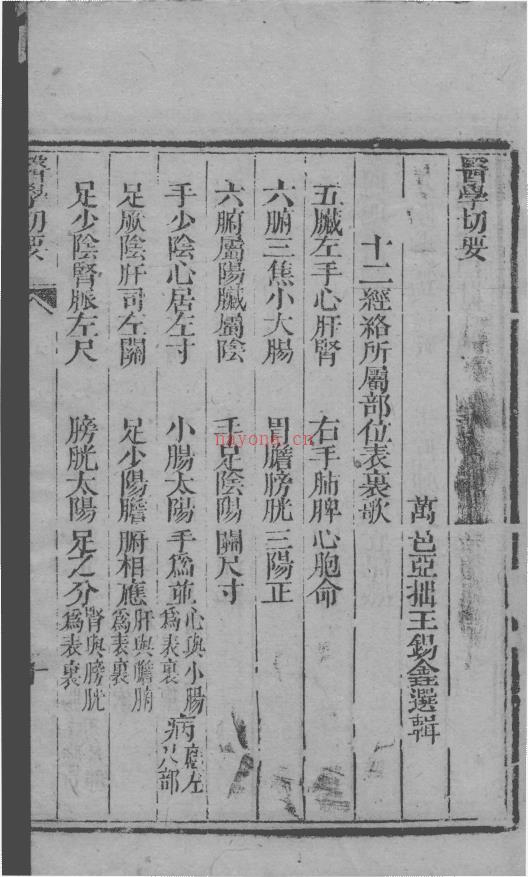 醫學切要
萬邑亞拙王錫鑫選輯
十二經絡所屬部位表裏歌
五臟左手心肝腎 右手肺脾心胞命
六腑三焦小大腸 胃膽膀胱三陽正
六腑屬陽臟屬陰 手足陰陽關尺寸
手少陰心居左寸 小腸太陽手為並 心與小腸為表裏
足厥陰肝司左關 足少陽膽腑相應 肝與膽腑為表裏
足少陰腎脈左尺 膀胱太陽足之分 腎與膀胱為表裏
醫學切要
nayona.cn